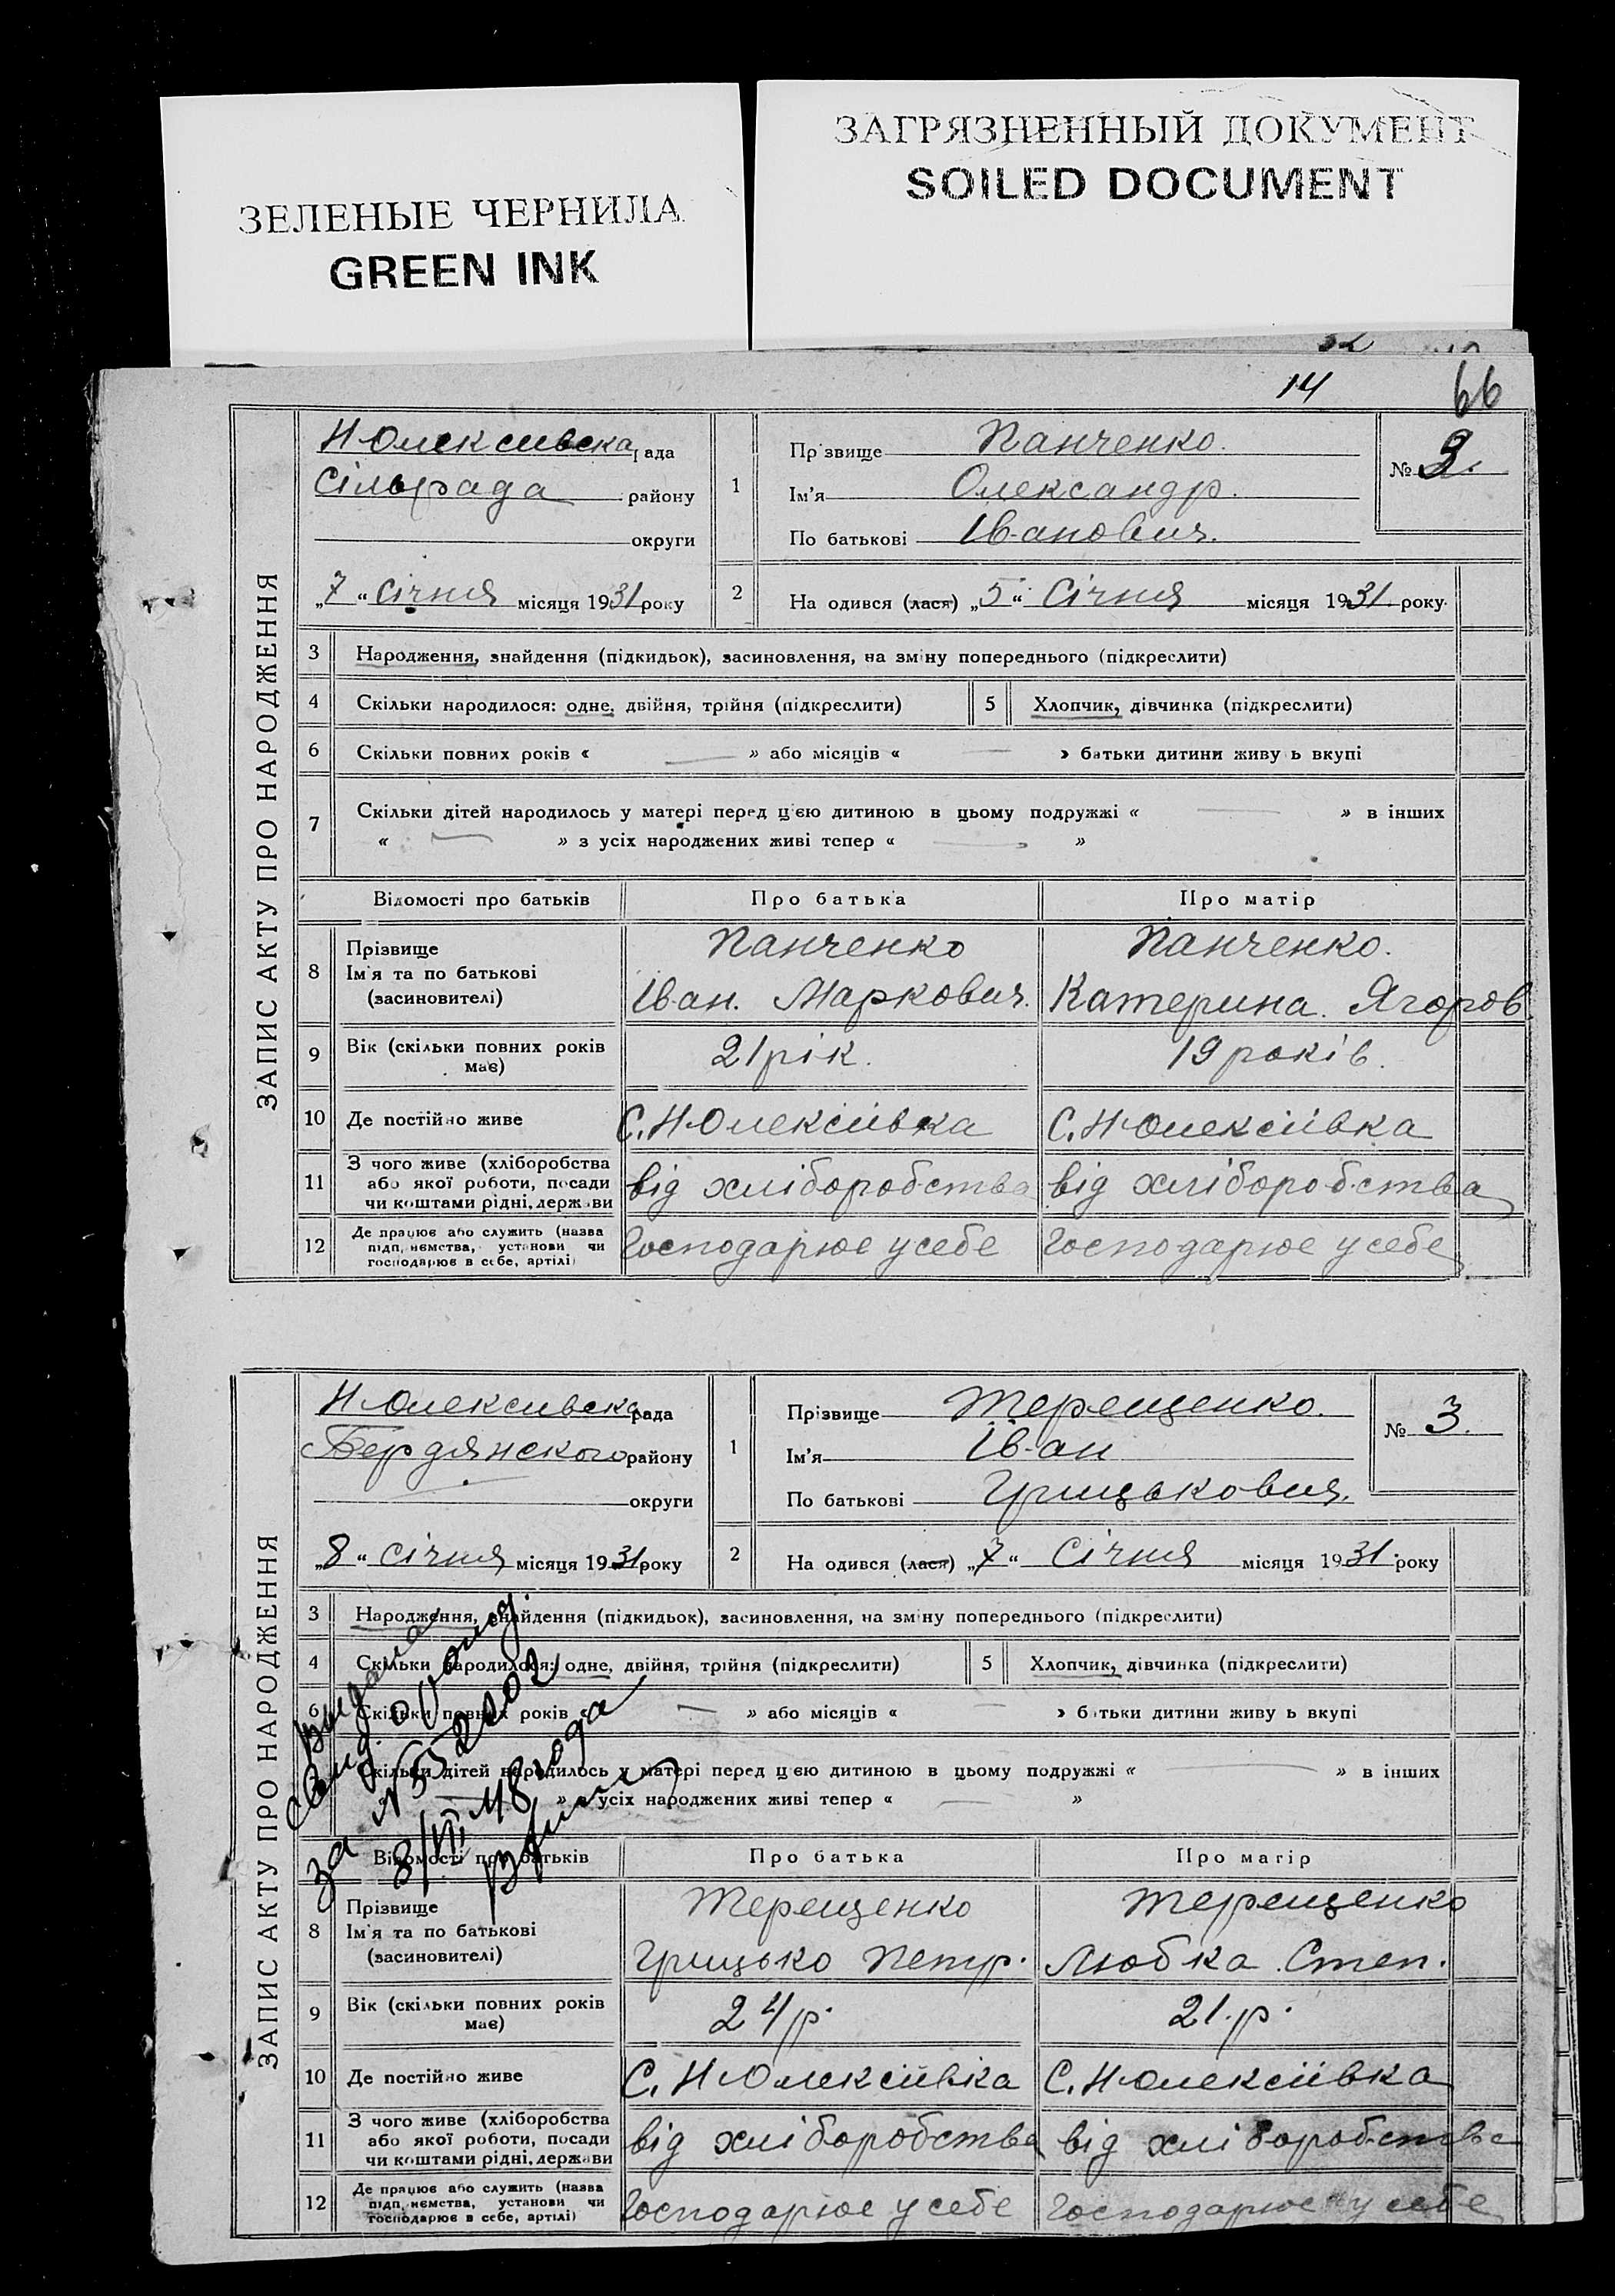 ЗЕЛЕНЫЕ ЧЕРНИЛА
GREEN INK
ЗАГРЯЗНЕННЫЙ ДОКУМЕНТ
SOILED DOCUMENT
14
66
ЗАПИС АКТУ ПРО НАРОДЖЕННЯ
Н Олексиівска рада
Сільрада району
округи
„7“ січня місяця 1931 року
1
Прізвище Панченко.
Ім'я Олександр.
По батькові Іванович.
№ 2.
2
На одився (лася) „5“ Січня місяця 1931 року
3 Народження, знайдення (підкидьок), засиновлення, на зміну попереднього (підкреслити)
4 Скільки народилося: одне, двійня, трійня (підкреслити)
5 Хлопчик, дівчинка (підкреслити)
6 Скільки повних років « — » або місяців « — » батьки дитини живу ь вкупі
7 Скільки дітей народилось у матері перед цією дитиною в цьому подружжі « — » в інших
« — » з усіх народжених живі тепер « — »
Відомості про батьків Про батька Про матір
8 Прізвище Ім'я та по батькові (засиновителі)
Панченко Панченко.
Іван. Маркович. Катерина. Ягоров
9 Вік (скільки повних років має) 21 рік. 19 років.
10 Де постійно живе С. Н Олексіївка С. Н Олексіївка
11 З чого живе (хліборобства або якої роботи, посади чи коштами рідні, держави від хліборобства від хліборобства
12 Де працює або служить (назва підп, иємства, установи чи господарює в себе, артілі) Господарює у себе Господарює у себе
ЗАПИС АКТУ ПРО НАРОДЖЕННЯ
Н Олексиівска рада
Бердянского району
округи
„8“ січня місяця 1931 року
1
Прізвище Терещенко.
Ім'я Іван
По батькові Грицькович.
№ 3.
2
На одився (лася) „7“ Січня місяця 1931 року
3 Народження, знайдення (підкидьок), засиновлення, на зміну попереднього (підкреслити)
4 Скільки народилося: одне, двійня, трійня (підкреслити)
5 Хлопчик, дівчинка (підкреслити)
6 Скільки повних років « — » або місяців « — » батьки дитини живу ь вкупі
Скільки дітей народилось у матері перед цією дитиною в цьому подружжі « — » в інших
« — » з усіх народжених живі тепер « — »
Выдана
свид. о
за №
48 года
Відомості про батьків Про батька Про матір
8 Прізвище Ім'я та по батькові (засиновителі)
Терещенко Терещенко
Грицько Петр. Любка Степ.
9 Вік (скільки повних років має) 24 р. 21. р.
10 Де постійно живе С. Н Олексіївка С. Н Олексіївка
11 З чого живе (хліборобства або якої роботи, посади чи коштами рідні, держави від хліборобства від хліборобства
12 Де працює або служить (назва підп, иємства, установи чи господарює в себе, артілі) Господарює у себе Господарює у себе